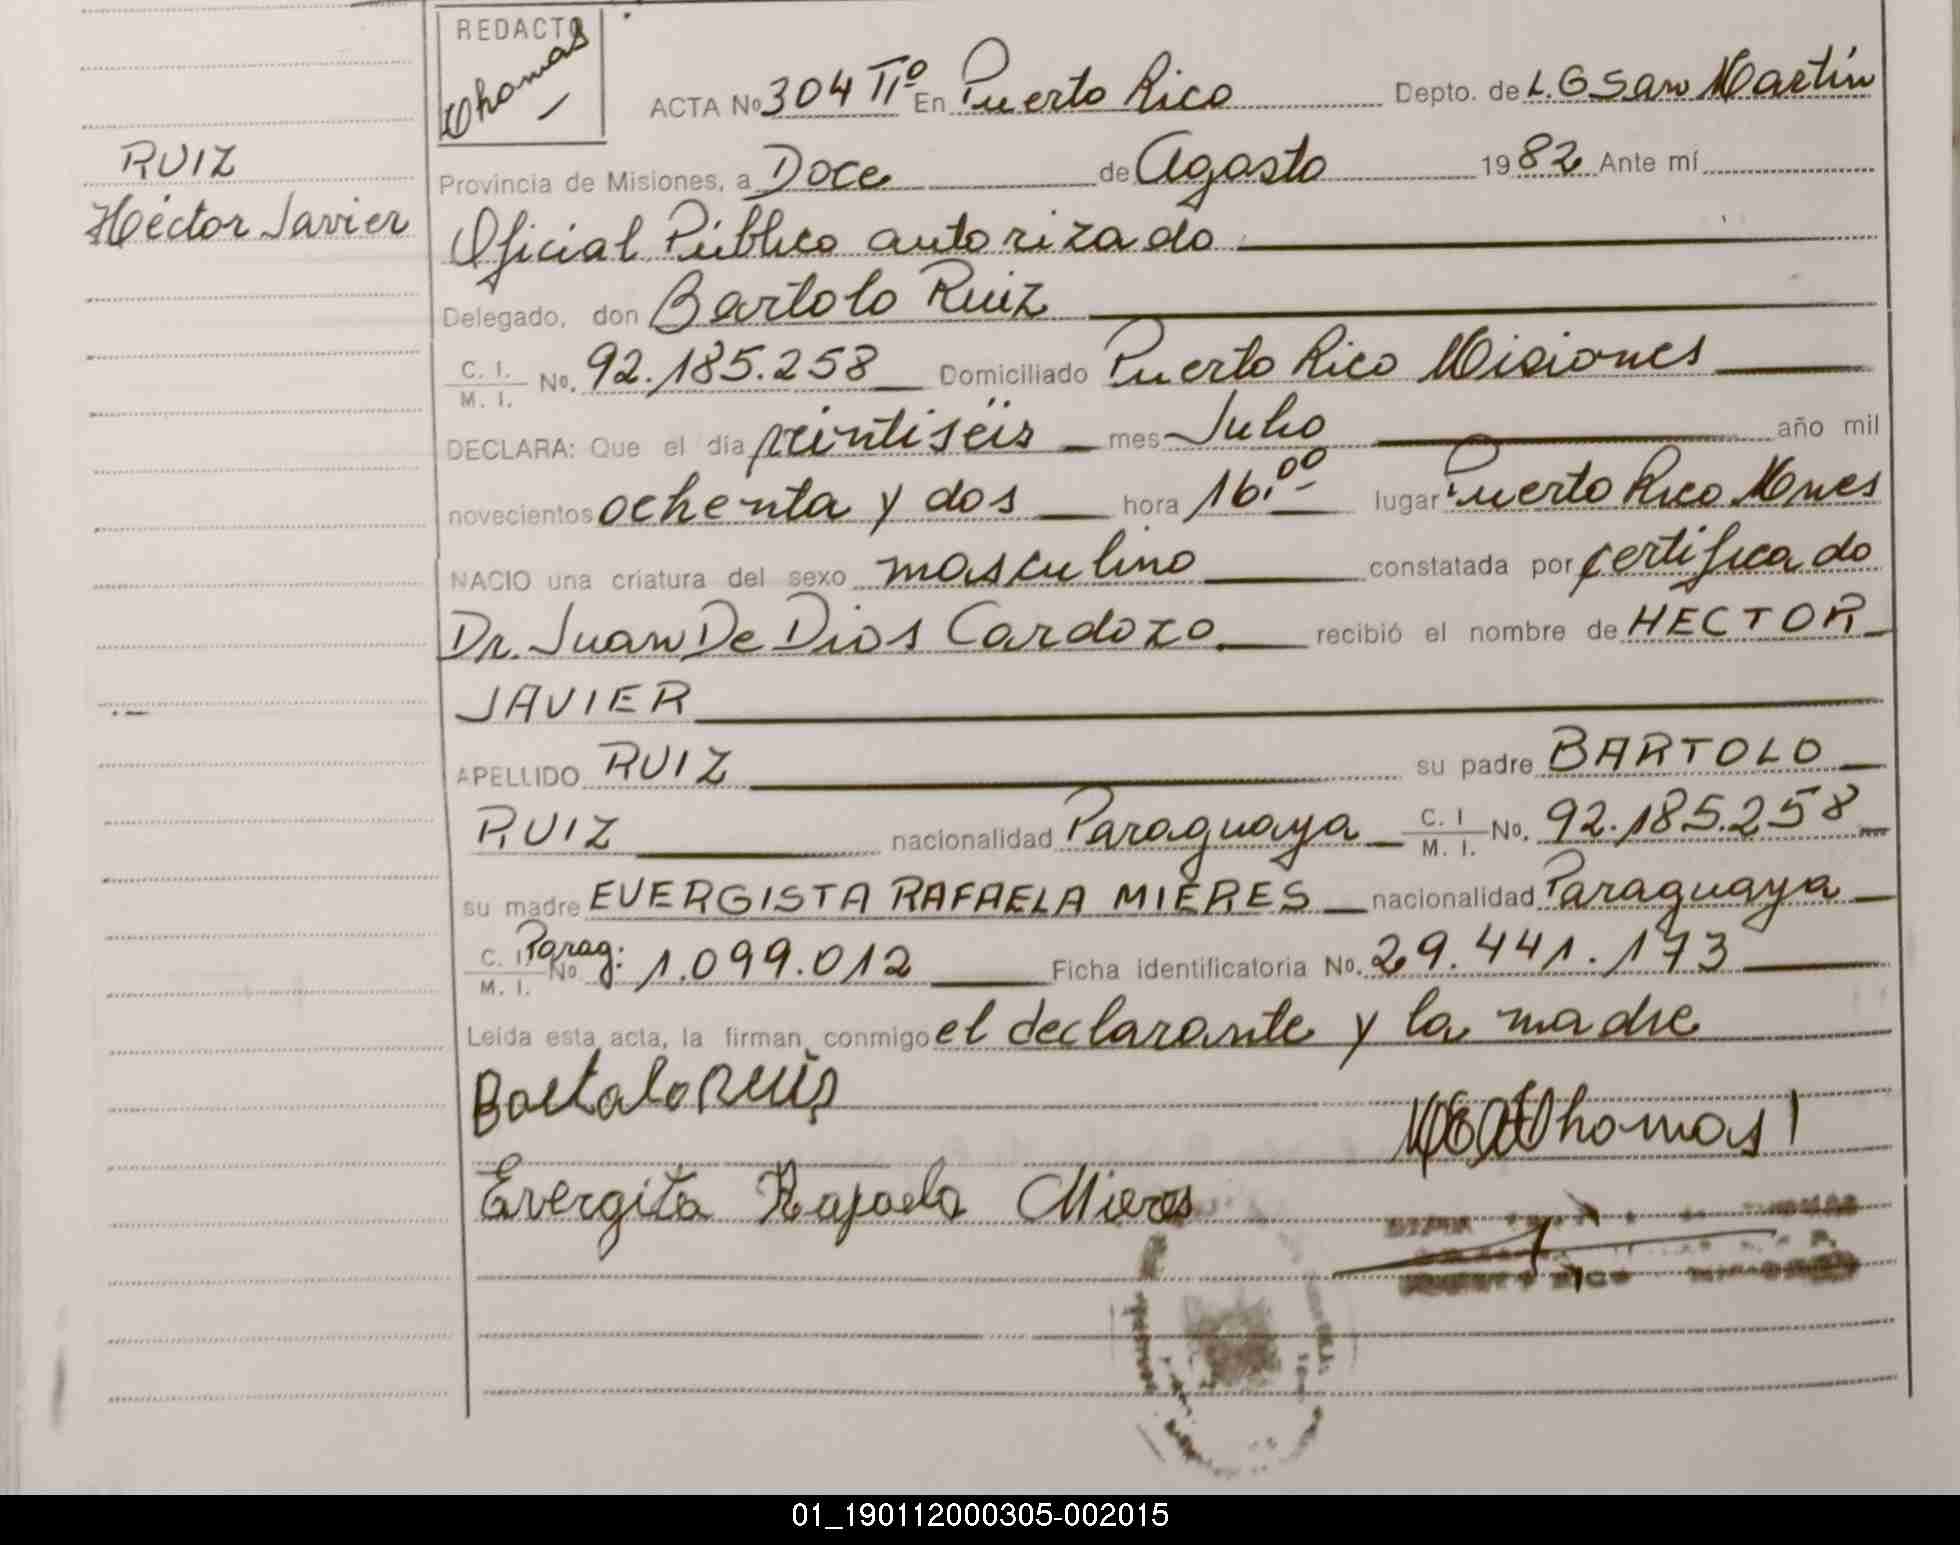 REDACTO
Thomas
ACTA No 304 IIº En Puerto Rico Depto. de L. G San Martín
RUIZ
Héctor Javier
Provincia de Misiones, a Doce de Agosto 1982 Ante mí
Oficial Público autorizado
Delegado, don Bartolo Ruiz
C. I. / M. I. No. 92.185.258 Domiciliado Puerto Rico Misiones
DECLARA: Que el día veintiséis mes Julio año mil
novecientos ochenta y dos hora 16.00 lugar Puerto Rico Mnes
NACIO una criatura del sexo masculino constatada por certificado
Dr. Juan De Dios Cardozo recibió el nombre de HECTOR
JAVIER
APELLIDO RUIZ su padre BARTOLO
RUIZ nacionalidad Paraguaya C. I / M. I. No. 92.185.258
su madre EVERGISTA RAFAELA MIERES nacionalidad Paraguaya
C. I / M. I. No Parag: 1.099.012 Ficha identificatoria No. 29.441.173
Leída esta acta, la firman conmigo el declarante y la madre
Bartolo Ruis
Thomas
Evergita Rafaela Mieres
01_190112000305-002015